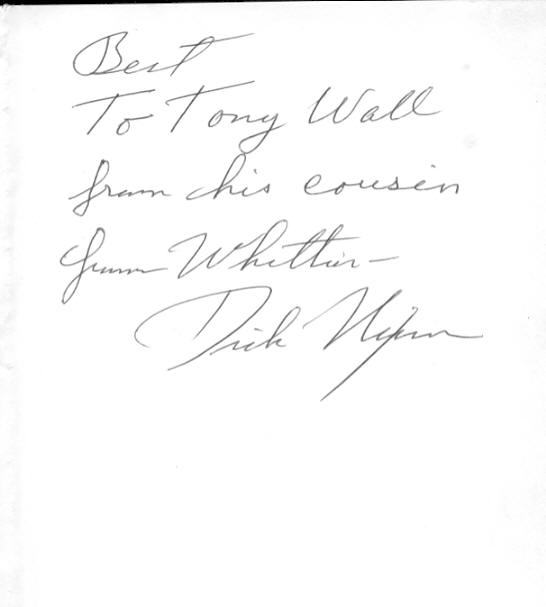 Best
To Tony Wall
from his cousin
from Whittier—
Dick Nixon